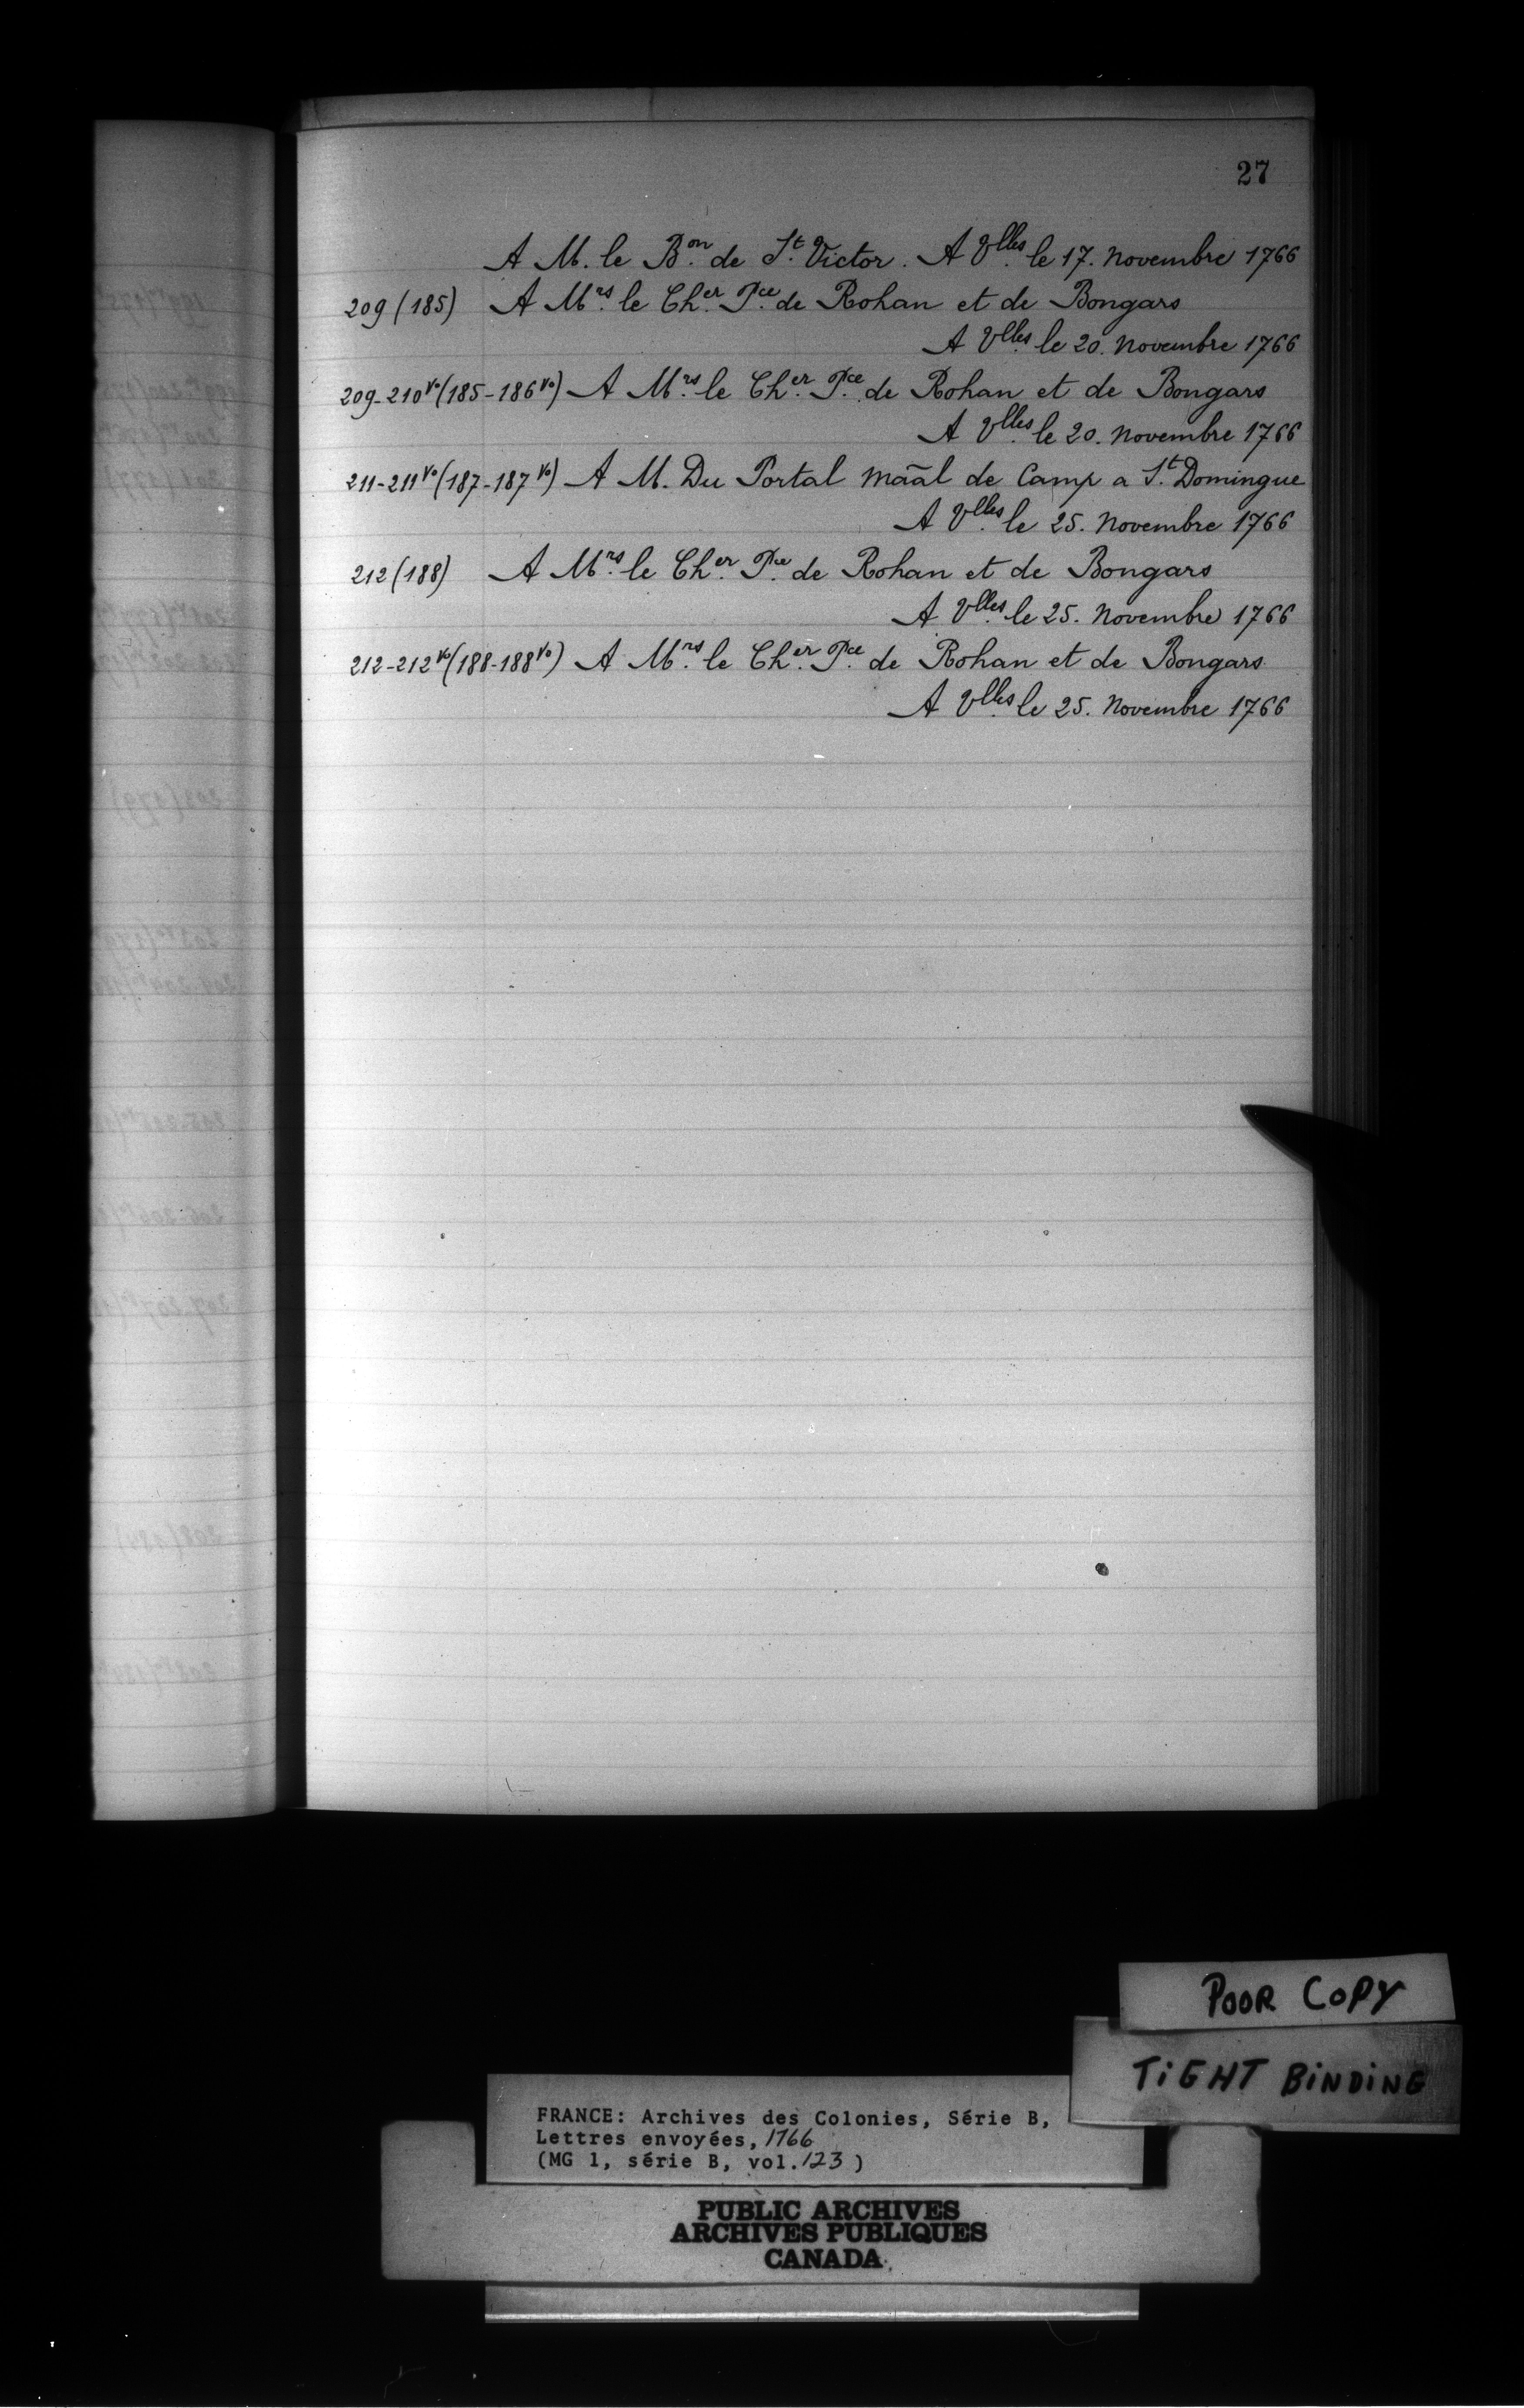 27
A M. le B.on de St. Victor. A Vlles. le 17. Novembre 1766
209 (185) A Mrs. le Cher. Pce. de Rohan et de Bongars
A Vlles. le 20. Novembre 1766
209-210 Vo (185-186 Vo) A Mrs. le Cher. Pce. de Rohan et de Bongars
A Vlles. le 20. Novembre 1766
211-211 Vo (187-187 Vo) A M. Du Portal Māāl de Camp a St. Domingue
A Vlles. le 25. Novembre 1766
212 (188) A Mrs. le Cher. Pce. de Rohan et de Bongars
A Vlles. le 25. Novembre 1766
212-212 Vo (188-188 Vo) A Mrs. le Cher. Pce. de Rohan et de Bongars
A Vlles. le 25. Novembre 1766
POOR COPY
TiGHT BiNDiNG
FRANCE: Archives des Colonies, Série B,
Lettres envoyées, 1766
(MG 1, série B, vol. 123)
PUBLIC ARCHIVES
ARCHIVES PUBLIQUES
CANADA